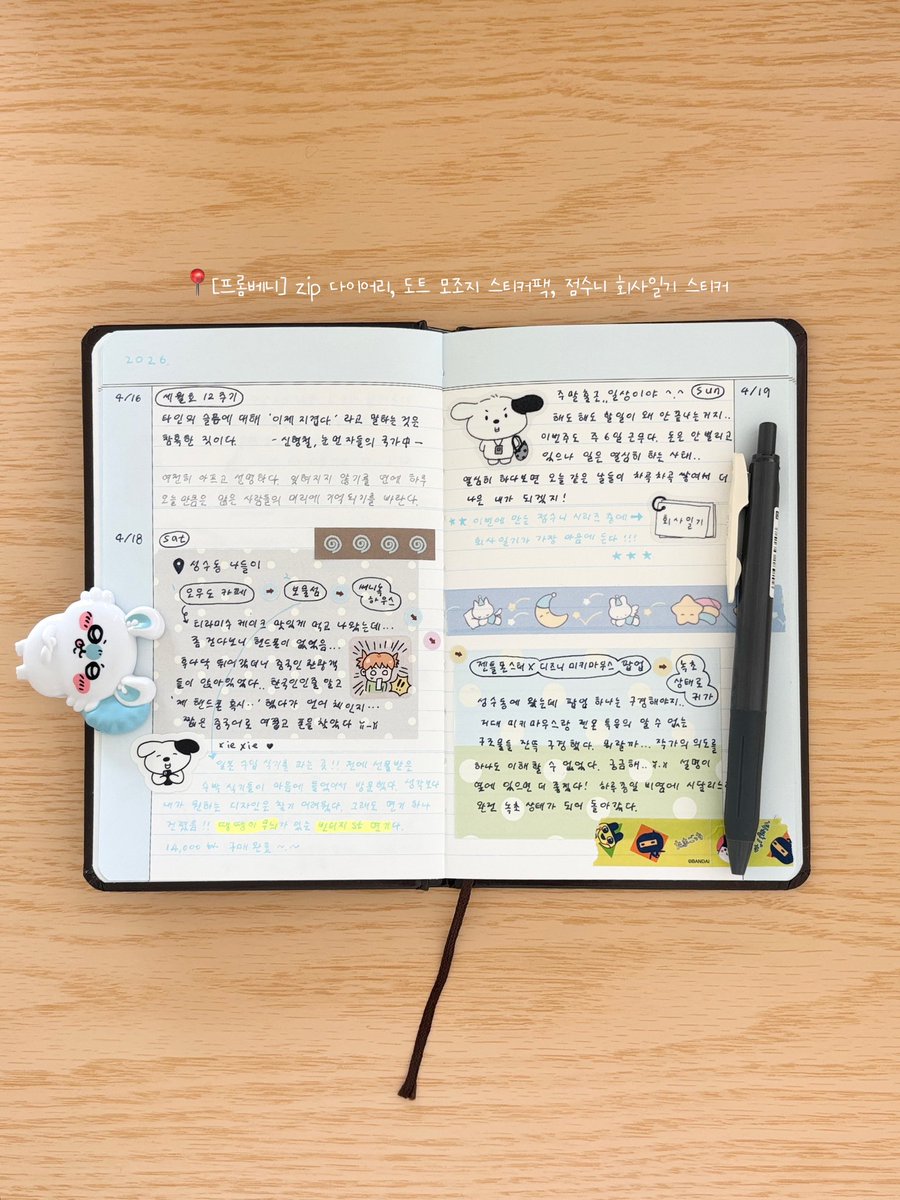 [프롬베니] zip 다이어리, 도트 모조지 스티커팩, 점수니 회사일기 스티커
2026.
4/16
세월호 12주기
타인의 슬픔에 대해 '이제 지겹다' 라고 말하는 것은
참혹한 짓이다. - 신형철, 눈먼 자들의 국가 中 -
여전히 아프고 선명하다. 잊혀지지 않기를 반면 하루
오늘만큼은 많은 사람들의 머리에 기억되기를 바란다.
4/18
sat
성수동 나들이
오우도 카페 → 보물섬 → 써니눅
하우스
티라미수 케이크 맛있게 먹고 나왔는데...
좀 걷다보니 핸드폰이 없었음...
후다닥 뛰어갔더니 중국인 관광객
들이 앉아있었다.. 한국인인줄 알고
'제 핸드폰 혹시..' 했다가 언어 체인지...
짧은 중국어로 여쭙고 폰을 찾았다 ㅠ-ㅠ
xie xie ♥
일본 수입 식기를 파는 곳!! 전에 선물받은
수박 식기들이 마음에 들었어서 방문했다. 생각보다
내가 원하는 디자인은 찾기 어려웠다. 그래도 면기 하나
건졌음!! 땡땡이 무늬가 있는 빈티지 st 면기다.
14,000 구매 완료 ~.~
주말출근.. 일상이야 ^.^
sun
4/19
해도 해도 할일이 왜 안 끝나는거지..
이번주도 주 6일 근무다. 돈은 안 벌리고
있으나 일은 열심히 하는 사태..
열심히 하다보면 오늘 같은 날들이 차곡차곡 쌓여서 더
나은 내가 되겠지!
★★ 이번에 만든 점수니 시리즈 중에 →
회사일기
회사일기가 가장 마음에 든다 !!!
★★★
젠틀몬스터 X 디즈니 미키마우스 팝업 → 녹초
상태로
귀가
성수동에 왔는데 팝업 하나는 구경해야지..
거대 미키마우스랑 젠몬 특유의 알 수 없는
구조물들 잔뜩 구경했다. 뭐랄까... 작가의 의도를
하나도 이해할 수 없었다. 궁금해.. ㅠ.ㅠ 설명이
옆에 있으면 더 좋겠다! 하루종일 비염에 시달리는
완전 녹초 상태가 되어 돌아갔다.
©BANDAI